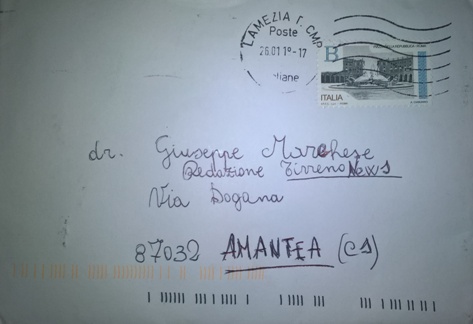 LAMEZIA T. CMP
Poste
26.01 19-17
liane
B
ITALIA
dr. Giuseppe Marchese
Redazione Tirreno News
Via Dogana
87032 AMANTEA (CS)